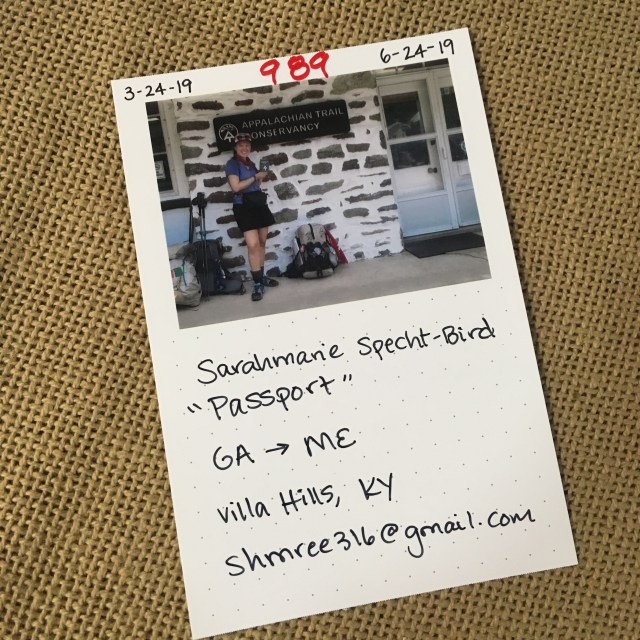 3-24-19
989
6-24-19
APPALACHIAN TRAIL
CONSERVANCY
Sarahmarie Specht-Bird
"Passport"
GA → ME
Villa Hills, KY
shmree316@gmail.com